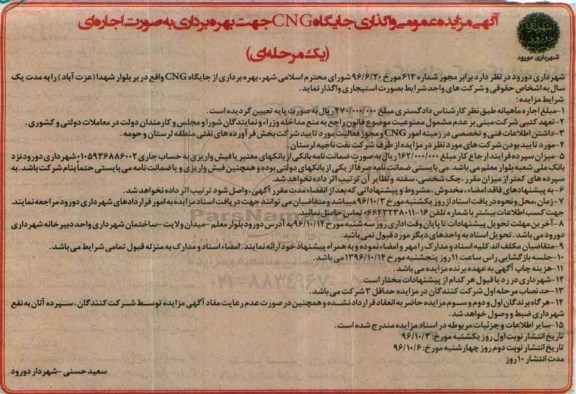 آگهی مزایده عمومی واگذاری جایگاه CNG جهت بهره برداری به صورت اجاره ای
(یک مرحله ای)
شهرداری دورود
شهرداری دورود در نظر دارد برابر مجوز شماره ۶۱۳ مورخ ۹۶/۶/۲۰ شورای محترم اسلامی شهر، بهره برداری از جایگاه CNG واقع در بلوار شهدا (عزت آباد) را به مدت یک
سال به اشخاص حقوقی و شرکت های واجد شرایط بصورت استیجاری واگذار نماید.
شرایط مزایده:
۱- مبلغ اجاره ماهیانه طبق نظر کارشناس دادگستری مبلغ ۲۷۰/۰۰۰/۰۰۰ ریال به صورت پایه تعیین گردیده است.
۲- تعهد کتبی شرکت مبنی بر عدم مشمول ممنوعیت موضوع قانون راجع به منع مداخله وزراء و نمایندگان شورا و مجلس و کارمندان دولت در معاملات دولتی و کشوری.
۳- داشتن اطلاعات فنی و تخصصی در زمینه امور CNG و مجوز فعالیت مورد تایید شرکت پخش فرآورده های نفتی منطقه لرستان و حومه.
۴- مورد تایید بودن شرکت های مورد نظر در مزایده از طرف شرکت نفت ناحیه لرستان.
۵- میزان سپرده فرایند ارجاع کار مبلغ ۱۶۲/۰۰۰/۰۰۰ ریال به صورت ضمانت نامه بانکی از بانکهای معتبر یا فیش واریزی به حساب جاری ۰۱۰۵۹۳۶۸۸۶۰۰۲ شهرداری دورود نزد
بانک ملی شعبه بلوار معلم می باشد. می بایستی ضمانت نامه صرفا از یکی از بانکهای دولتی بوده و همچنین فیش واریزی و یا ضمانت نامه می بایستی حتما بنام شرکت باشد. به
سپرده های کمتر از میزان مقرر، چک شخصی، سفته و نظایر آن ترتیب اثر داده نخواهد شد.
۶- به پیشنهادهای فاقد امضاء، مخدوش، مشروط و پیشنهاداتی که بعد از انقضاء مدت مقرر آگهی، واصل شود ترتیب اثر داده نخواهد شد.
۷- زمان، محل و نحوه دریافت اسناد از روز یکشنبه مورخ ۹۶/۱۰/۳ میباشد و متقاضیان می توانند جهت دریافت اسناد مزایده به امور قراردادهای شهرداری دورود مراجعه نمایند.
جهت کسب اطلاعات بیشتر با شماره تلفن ۱۶-۰۶۶۴۳۲۳۸۰۱۱ تماس حاصل نمائید.
۸- آخرین مهلت تحویل پیشنهادات تا پایان وقت اداری روز سه شنبه مورخ ۹۶/۱۰/۱۲ به آدرس دورود بلوار معلم - میدان ولایت - ساختمان شهرداری واحد دبیرخانه شهرداری
دورود می باشد. تحویل اسناد به واحدهای دیگر مورد قبول نمی باشد.
۹- متقاضیان مکلف اند کلیه اسناد و مدارک را مهر و امضاء نموده و به همراه پیشنهاد خود ارائه نمایند. امضاء اسناد و مدارک به منزله قبول تمامی شرایط می باشد.
۱۰- جلسه بازگشایی راس ساعت ۱۱ روز پنجشنبه مورخ ۱۳۹۶/۱۰/۱۴ می باشد.
۱۱- هزینه چاپ آگهی به عهده برنده مزایده می باشد.
۱۲- شهرداری در رد یا قبول هر کدام از پیشنهادات مختار است.
۱۳- حد نصاب مرحله اول شرکت کنندگان در مزایده حداقل ۳ شرکت می باشد.
۱۴- هرگاه برندگان اول و دوم و سوم مزایده حاضر به انعقاد قرارداد نشده و همچنین در صورت عدم رعایت مفاد آگهی مزایده توسط شرکت کنندگان، سپرده آنان به نفع
شهرداری ضبط و وصول خواهد شد.
۱۵- سایر اطلاعات و جزئیات مربوطه در اسناد مزایده مندرج شده است.
تاریخ انتشار نوبت اول روز یکشنبه مورخ: ۹۶/۱۰/۳
تاریخ انتشار نوبت دوم روز چهارشنبه مورخ: ۹۶/۱۰/۶
مدت انتشار ۱۰ روز
سعید حسنی - شهردار دورود